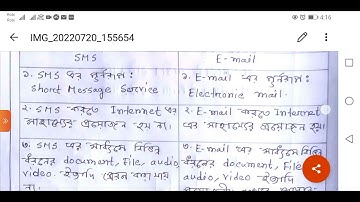 4:16
IMG_20220720_155654
SMS
E-mail
১. SMS এর পূর্ণরূপ:
Short Message Service
১. E-mail এর পূর্ণরূপ:
Electronic mail.
২. SMS করতে Internet এর
সাহায্যের প্রয়োজন হয় না।
২. E-mail করতে Internet
এর সাহায্যের প্রয়োজন হয়।
৩. SMS এর মাধ্যমে বিভিন্ন
ধরনের document, File, audio,
video ইত্যাদি প্রেরন করা যায়
না।
৩. E-mail এর মাধ্যমে বিভিন্ন
ধরনের document, File,
audio, video ইত্যাদি